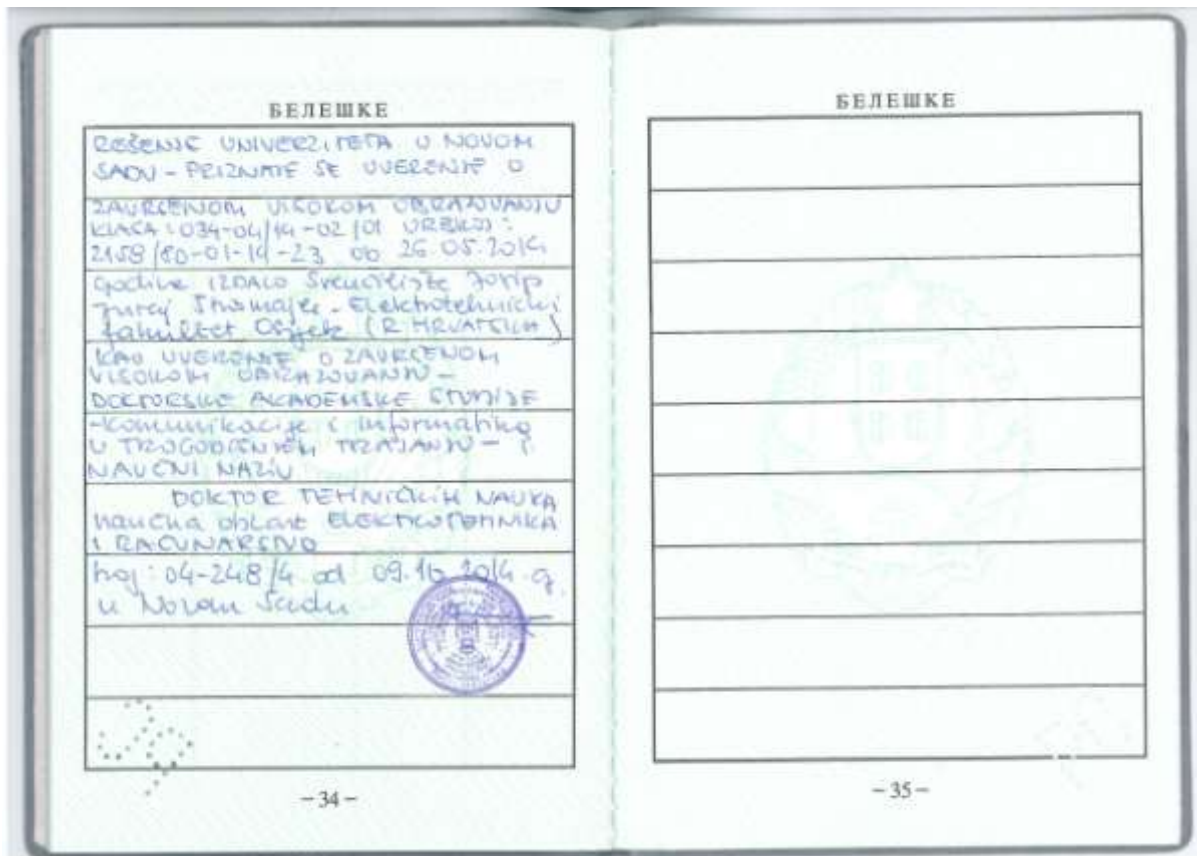 БЕЛЕШКЕ
REŠENJE UNIVERZITETA U NOVOM
SADU - PRIZNAJE SE UVERENJE O
ZAVRŠENOM VISOKOM OBRAZOVANJU
KLASA: 034-04/14-02/01 URBROJ:
2158/80-01-14-23 OD 26.05.2014
godine IZDALO Sveučilište Josip
Juraj Štrosmajer - Elektrotehnički
fakultet Osijek (R HRVATSKA)
KAO UVERENJE O ZAVRŠENOM
VISOKOM OBRAZOVANJU -
DOKTORSKE AKADEMSKE STUDIJE
- Komunikacije i informatika
U TROGODIŠNJEM TRAJANJU - I
NAUČNI NAZIV
DOKTOR TEHNIČKIH NAUKA
naučna oblast ELEKTROTEHNIKA
I RAČUNARSTVO
broj: 04-248/4 od 09.10.2014. g.
u Novom Sadu
- 34 -
БЕЛЕШКЕ
- 35 -